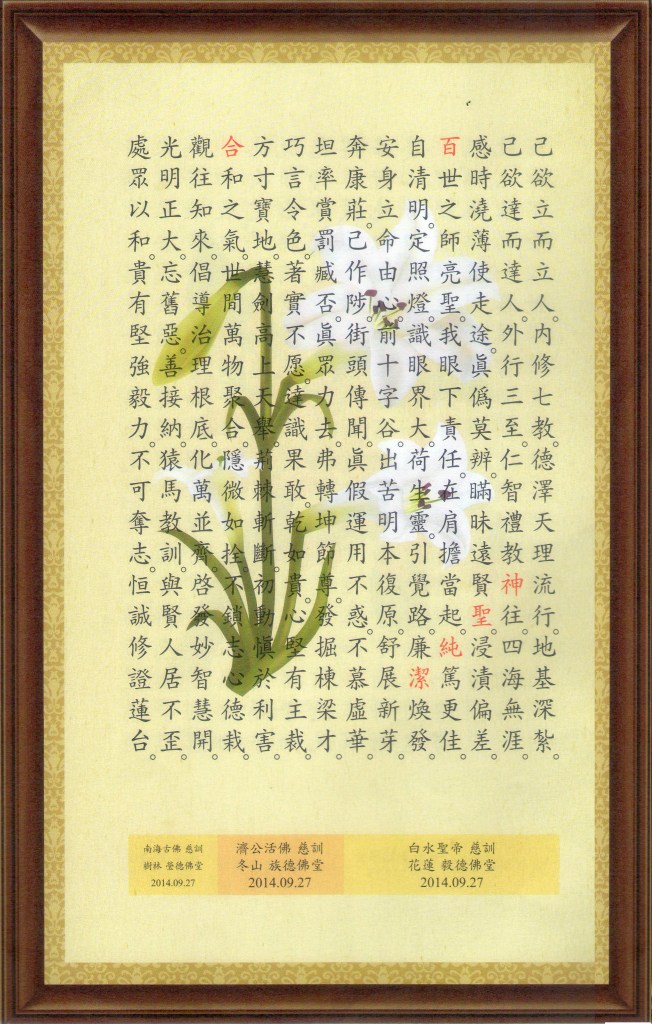 己欲立而立人。內修七教德澤天理流行。地基深紮。
己欲達而達人。外行三至。仁智禮教神往。四海無涯。
感時澆薄使走途。眞偽莫辨。瞞昧遠賢聖。浸漬偏差。
百世之師亮聖。我眼下責任。在肩擔當起。純篤更佳。
自清明。定照燈。識眼界大。荷生靈。引覺路。廉潔煥發。
安身立命由心。前十字谷。出苦明本復原。舒展新芽。
奔康莊。己作陟。街頭傳聞。眞假運用不惑。不慕虛華。
坦率賞罰臧否。眞眾力去。弗轉坤節尊。發掘棟梁才。
巧言令色。著實不愿。達識果敢。乾如貴。心堅有主裁。
方寸寶地。慧劍高上天舉。荊棘斬斷。初動愼於利害。
合和之氣。世間萬物聚合。隱微如拴。不鎖志心德栽。
觀往知來。倡導治理根底。化萬並齊。啓發妙智慧開。
光明正大。忘舊惡。善接納。猿馬教訓。與賢人居不歪。
處眾以和。貴有堅強毅力。不可奪志。恒誠修證蓮台。
白水聖帝 慈訓
花蓮 毅德佛堂
2014.09.27
濟公活佛 慈訓
冬山 族德佛堂
2014.09.27
南海古佛 慈訓
樹林 瑩德佛堂
2014.09.27